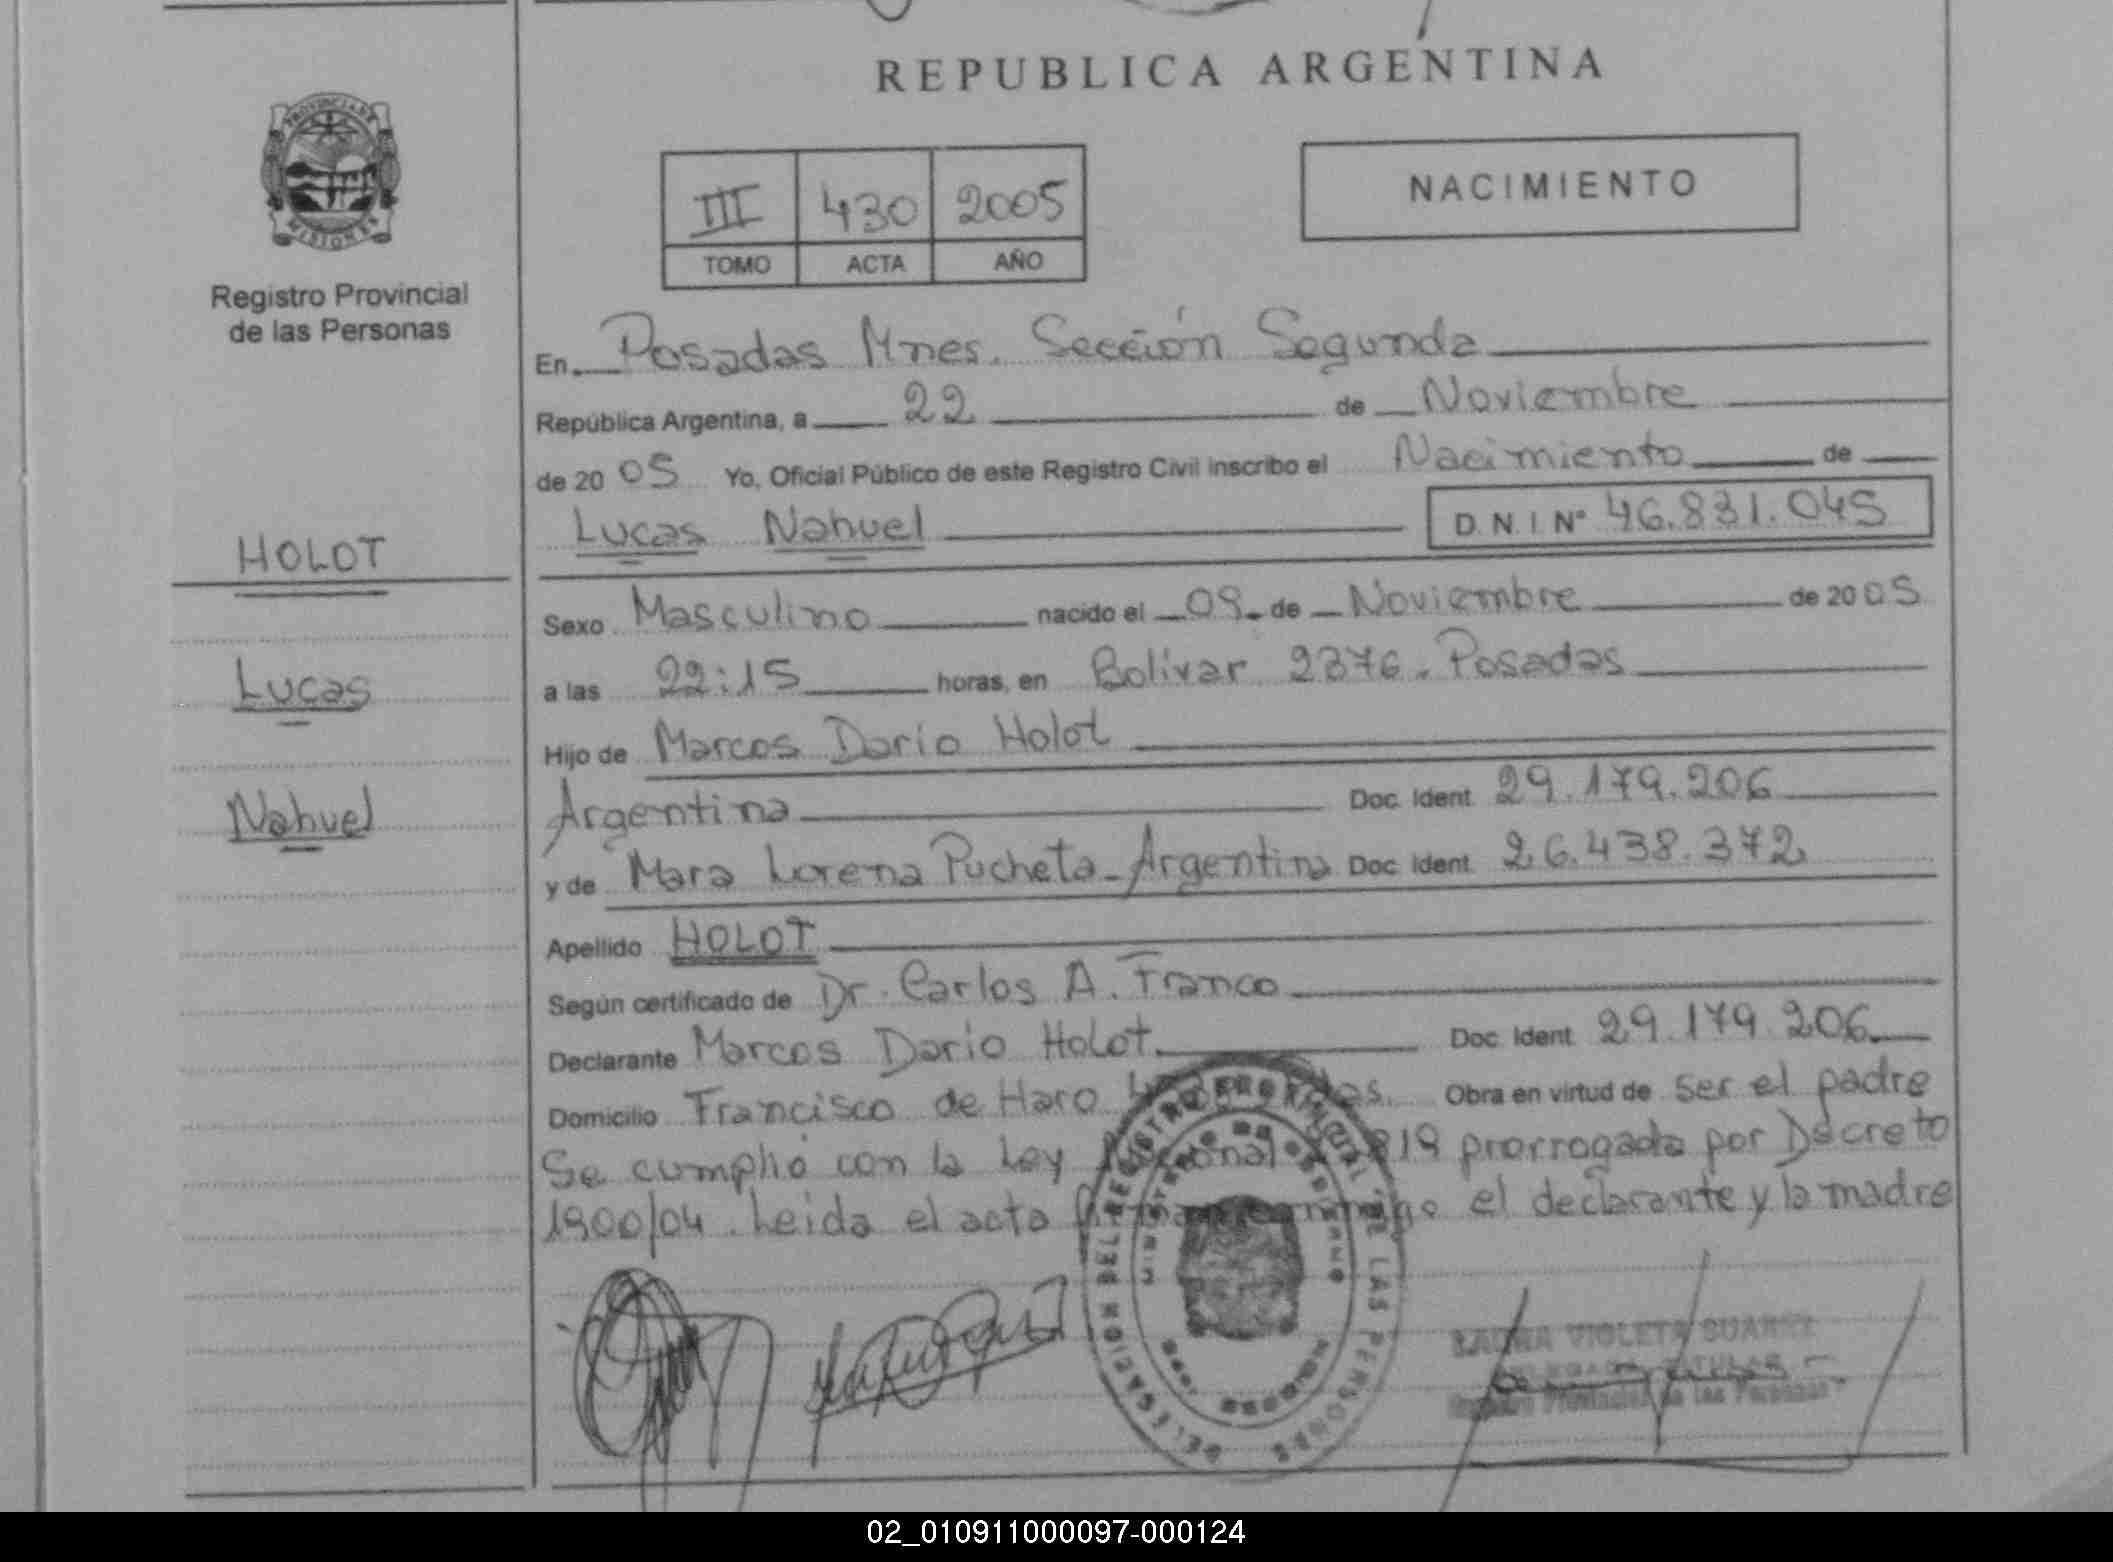 REPUBLICA ARGENTINA
PROVINCIA DE
MISIONES
Registro Provincial
de las Personas
III 430 2005
TOMO ACTA AÑO
NACIMIENTO
En Posadas Mnes. Sección Segunda
República Argentina, a 22 de Noviembre
de 2005 Yo, Oficial Público de este Registro Civil inscribo el Nacimiento de
Lucas Nahuel D.N.I Nº 46.831.045
HOLOT
Lucas
Nahuel
Sexo Masculino nacido el 09 de Noviembre de 2005
a las 22:15 horas, en Bolivar 2376. Posadas
Hijo de Marcos Dario Holot
Argentina Doc. Ident. 29.179.206
y de Mara Lorena Pucheta - Argentina Doc. Ident. 26.438.372
Apellido HOLOT
Según certificado de Dr. Carlos A. Franco
Declarante Marcos Dario Holot Doc. Ident. 29.179.206
Domicilio Francisco de Haro Obra en virtud de ser el padre
Se cumplió con la Ley prorrogada por Decreto
1900/04. Leida el acta el declarante y la madre
DELEGACION DEL REGISTRO PROVINCIAL DE LAS PERSONAS
MINISTERIO DE GOBIERNO
MISIONES
LAURA VIOLETA SUAREZ
TITULAR
Registro Provincial de las Personas
02_010911000097-000124